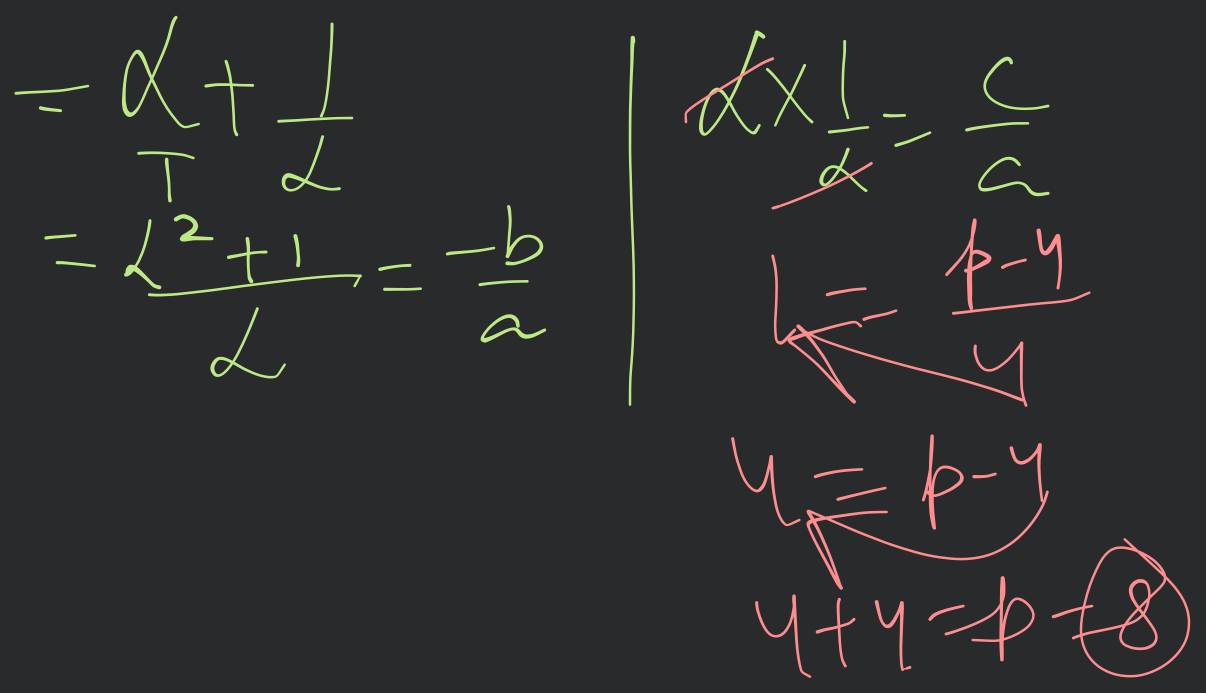 = α/1 + 1/α
= α² + 1 / α = -b/a
α × 1/α = c/a
1 = p-4 / 4
4 = p-4
4+4 = p = 8